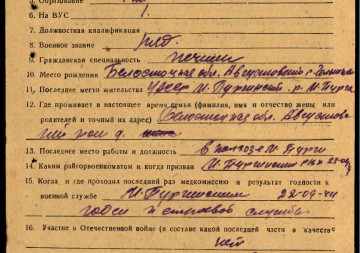 5. Образование
6. На ВУС
7. Должностная квалификация
8. Военное звание
9. Гражданская специальность
10. Место рождения Белостокская обл. Августовский р.
11. Последнее место жительства М. Пургинский р. М. Пурга
12. Где проживает в настоящее время семья (фамилия, имя и отчество жены или
родителей и точный их адрес) Белостокская обл. Августов
13. Последнее место работы и должность в колхозе М. Пурги
14. Каким райгорвоенкоматом и когда призван М. Пургинским РВК
15. Когда и где проходил последний раз медкомиссию и результат годности к
военной службе М. Пургинским 22-09-44
годен к строевой службе
16. Участие в Отечественной войне (в составе какой последней части в качестве
нет